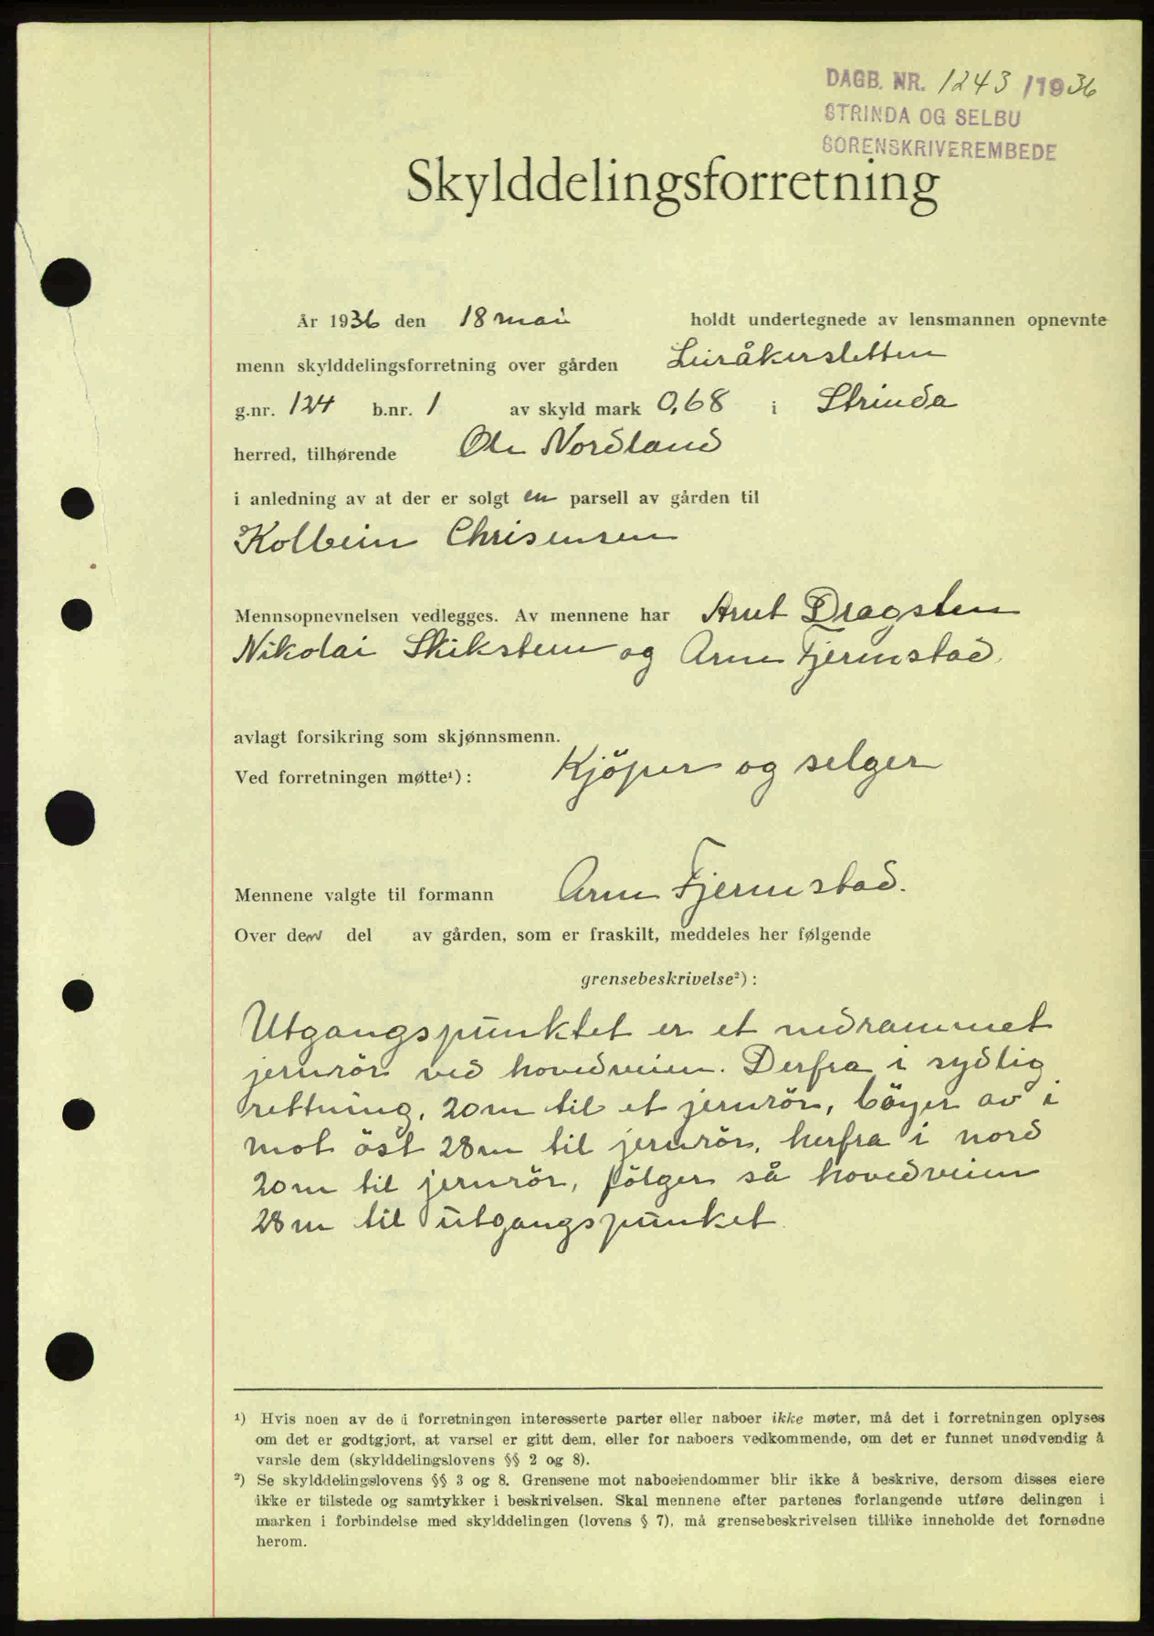 DAGB. NR. 1243 /1936
STRINDA OG SELBU
SORENSKRIVEREMBEDE
Skylddelingsforretning
År 1936 den 18 mai holdt undertegnede av lensmannen opnevnte
menn skylddelingsforretning over gården Leiråkersletten
g.nr. 124 b.nr. 1 av skyld mark 0,68 i Strinda
herred, tilhørende Ole Nordland
i anledning av at der er solgt en parsell av gården til
Kolbein Chrisensen
Mennsopnevnelsen vedlegges. Av mennene har Arnt Dragsten
Nikolai Stikstun og Arne Fjermstad.
avlagt forsikring som skjønnsmenn.
Ved forretningen møtte¹): Kjöper og selger
Mennene valgte til formann Arne Fjermstad.
Over den del av gården, som er fraskilt, meddeles her følgende
grensebeskrivelse²):
Utgangspunktet er et nedrammet
jernrör ved hovedveien. Derfra i sydlig
rettning, 20m til et jernrör, böyer av i
mot öst 28m til jernrör, herfra i nord
20m til jernrör, fölger så hovedveien
28m til utgangspunket.
¹) Hvis noen av de i forretningen interesserte parter eller naboer ikke møter, må det i forretningen oplyses
om det er godtgjort, at varsel er gitt dem, eller for naboers vedkommende, om det er funnet unødvendig å
varsle dem (skylddelingslovens §§ 2 og 8).
²) Se skylddelingslovens §§ 3 og 8. Grensene mot naboeiendommer blir ikke å beskrive, dersom disses eiere
ikke er tilstede og samtykker i beskrivelsen. Skal mennene efter partenes forlangende utføre delingen i
marken i forbindelse med skylddelingen (lovens § 7), må grensebeskrivelsen tillike inneholde det fornødne
herom.